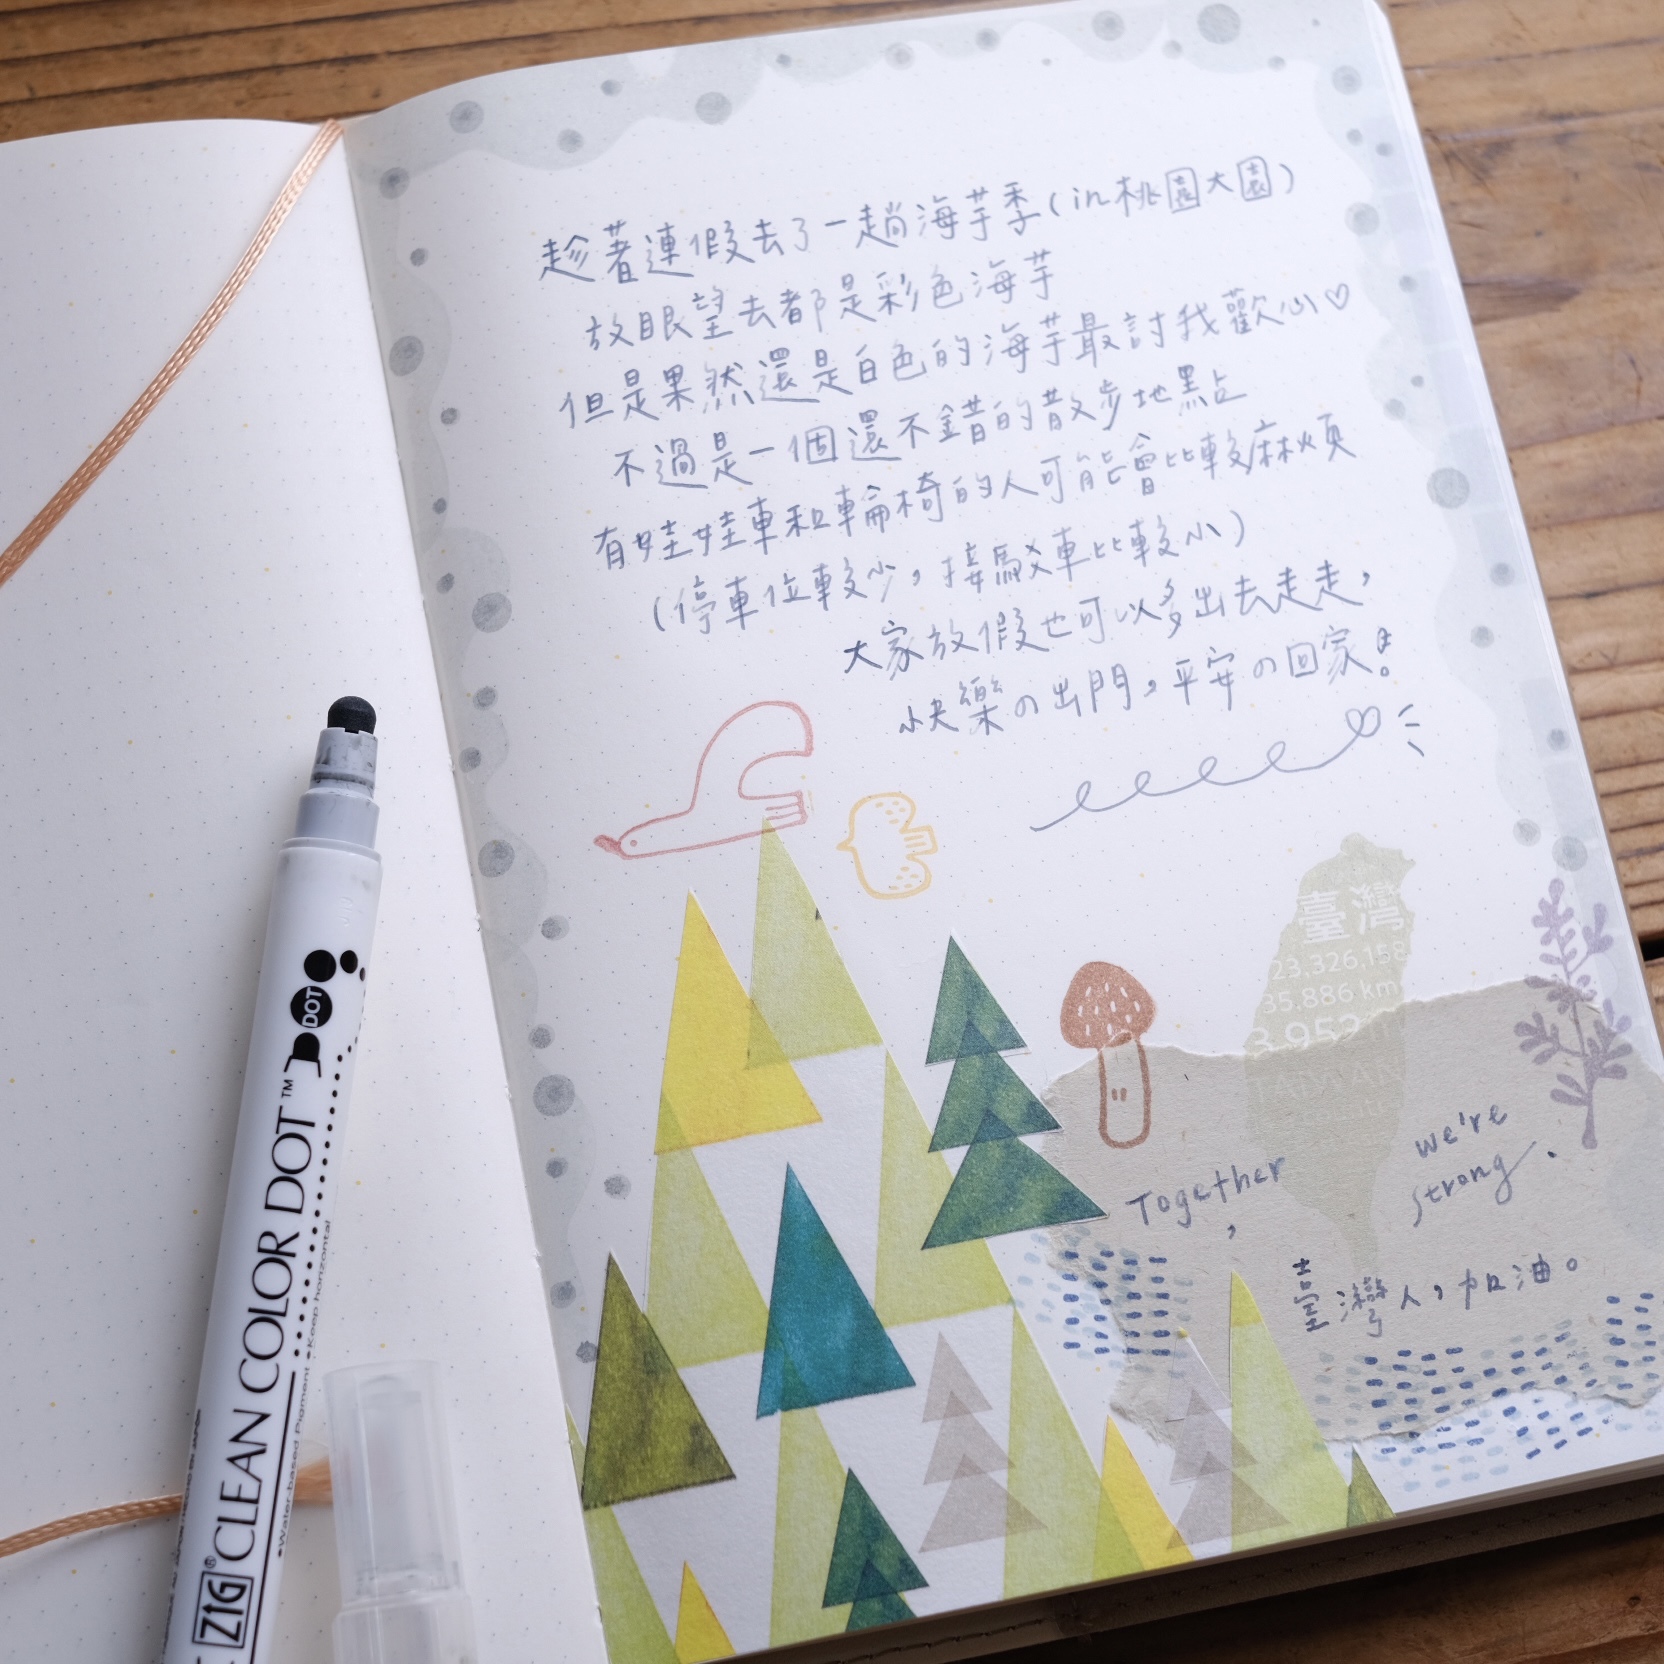 趁著連假去了一趟海芋季(in桃園大園)
放眼望去都是彩色海芋
但是果然還是白色的海芋最討我歡心♡
不過是一個還不錯的散步地點
有娃娃車和輪椅的人可能會比較麻煩
(停車位較少，接駁車比較小)
大家放假也可以多出去走走，
快樂の出門，平安の回家！
臺灣
23,326,158
35.886 km
3.952
TAIWAN
Together,
we're
strong.
臺灣人，加油。
DOT
CLEAN COLOR DOT™
•Water-based Pigment •Keep horizontal
ZIG®